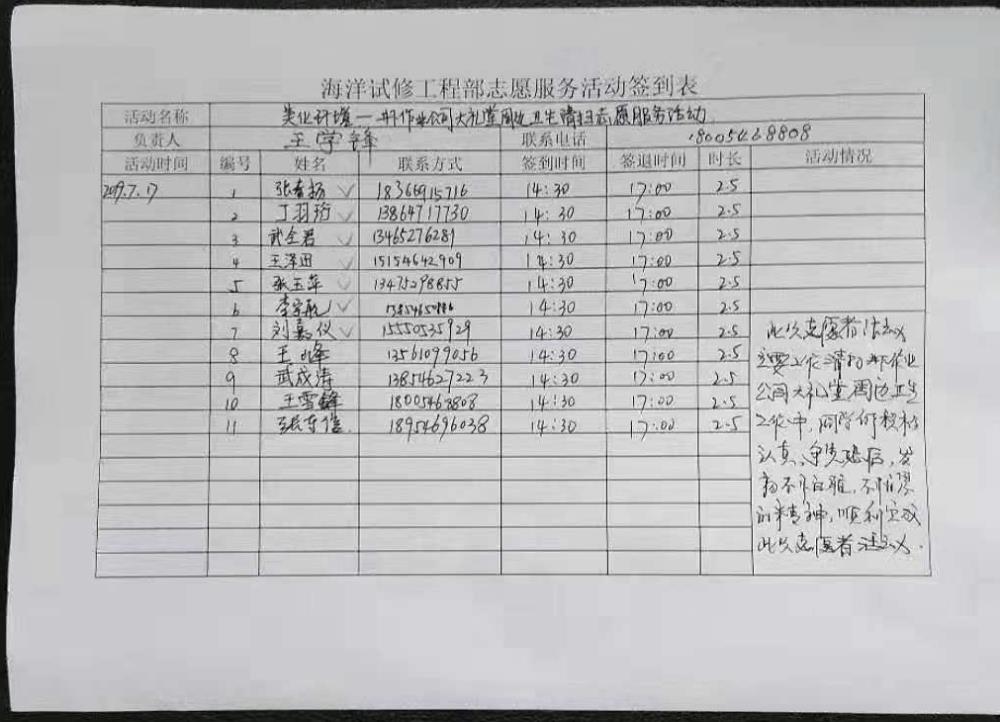 海洋试修工程部志愿服务活动签到表
活动名称 美化环境—井下作业公司大礼堂周边卫生清扫志愿服务活动
负责人 王学锋 联系电话 18005468808
活动时间 编号 姓名 联系方式 签到时间 签退时间 时长 活动情况
2019.7.17 1 张春扬 18366915716 14:30 17:00 2.5
2 丁羽珩 13864717730 14:30 17:00 2.5
3 武全君 13465276281 14:30 17:00 2.5
4 王泽 15154642909 14:30 17:00 2.5
5 张玉萍 13475298855 14:30 17:00 2.5
6 李宗航 14:30 17:00 2.5
7 刘嘉仪 15550535929 14:30 17:00 2.5
8 王 13561099056 14:30 17:00 2.5
9 武成涛 13854627223 14:30 17:00 2.5
10 王雪锋 18005468808 14:30 17:00 2.5
11 张 18954696038 14:30 17:00 2.5
此次志愿者活动
主要工作清扫井下作业
公司大礼堂周边卫生
工作中,同学们积极
认真,争先恐后,发
扬不怕 ,不怕
的精神,顺利完成
此次志愿者活动.